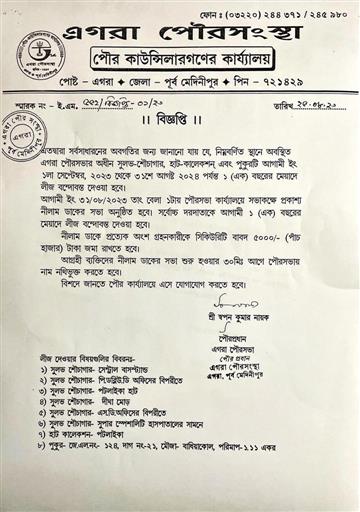 ফোন : (০৩২২০) ২৪৪ ৩৭১ / ২৪৫ ৯৮০
এগরা পৌরসংস্থা
পৌর কাউন্সিলারগণের কার্য্যালয়
পোষ্ট - এগরা ◆ জেলা - পূর্ব মেদিনীপুর ◆ পিন - ৭২১৪২৯
স্মারক নং - ই.এম.
তারিখ
এগরা পৌর সংস্থা
এগরা
পূর্ব মেদিনীপুর
।। বিজ্ঞপ্তি ।।
এতদ্বারা সর্বসাধারনের অবগতির জন্য জানানো যায় যে, নিম্নবর্ণিত স্থানে অবস্থিত
এগরা পৌরসভার অধীন সুলভ-শৌচাগার, হাট-কালেকশন এবং পুকুরটি আগামী ইং
১লা সেপ্টেম্বর, ২০২৩ থেকে ৩১শে আগষ্ট ২০২৪ পর্যন্ত ১ (এক) বছরের মেয়াদে
লীজ বন্দোবস্ত দেওয়া হবে।
আগামী ইং ৩১/০৮/২০২৩ তাং বেলা ১টায় পৌরসভা কার্য্যালয়ে সভাকক্ষে প্রকাশ্য
নীলাম ডাকের সভা অনুষ্ঠিত হবে। সর্বোচ্চ দরদাতাকে আগামী ১ (এক) বছরের
মেয়াদে লীজ বন্দোবস্ত দেওয়া হবে।
নীলাম ডাকে প্রত্যেক অংশ গ্রহনকারীকে সিকিউরিটি বাবদ ৫০০০/- (পাঁচ
হাজার) টাকা জমা রাখতে হবে।
আগ্রহী ব্যক্তিদের নীলাম ডাকের সভা শুরু হওয়ার ৩০মিঃ আগে পৌরসভায়
নাম নথিভুক্ত করতে হবে।
বিশদে জানতে পৌর কার্য্যালয়ে এসে যোগাযোগ করতে হবে।
শ্রী স্বপন কুমার নায়ক
পৌরপ্রধান
এগরা পৌরসভা
পৌর প্রধান
এগরা পৌরসংস্থা
এগরা, পূর্ব মেদিনীপুর
লীজ দেওয়ার বিষয়গুলির বিবরনঃ-
১) সুলভ শৌচাগার- সেন্ট্রাল বাসস্ট্যান্ড
২) সুলভ শৌচাগার- পি.ডব্লিউ.ডি অফিসের বিপরীতে
৩) সুলভ শৌচাগার- পটলাইকা হাট
৪) সুলভ শৌচাগার- দীঘা মোড়
৫) সুলভ শৌচাগার- এস.ডি.অফিসের বিপরীতে
৬) সুলভ শৌচাগার- সুপার স্পেশালিটি হাসপাতালের সামনে
৭) হাট কালেকশন- পটলাইকা
৮) পুকুর- জে.এল.নং- ১২৪, দাগ নং-২১, মৌজা- বাধিয়াকোল, পরিমাপ-১.১১ একর